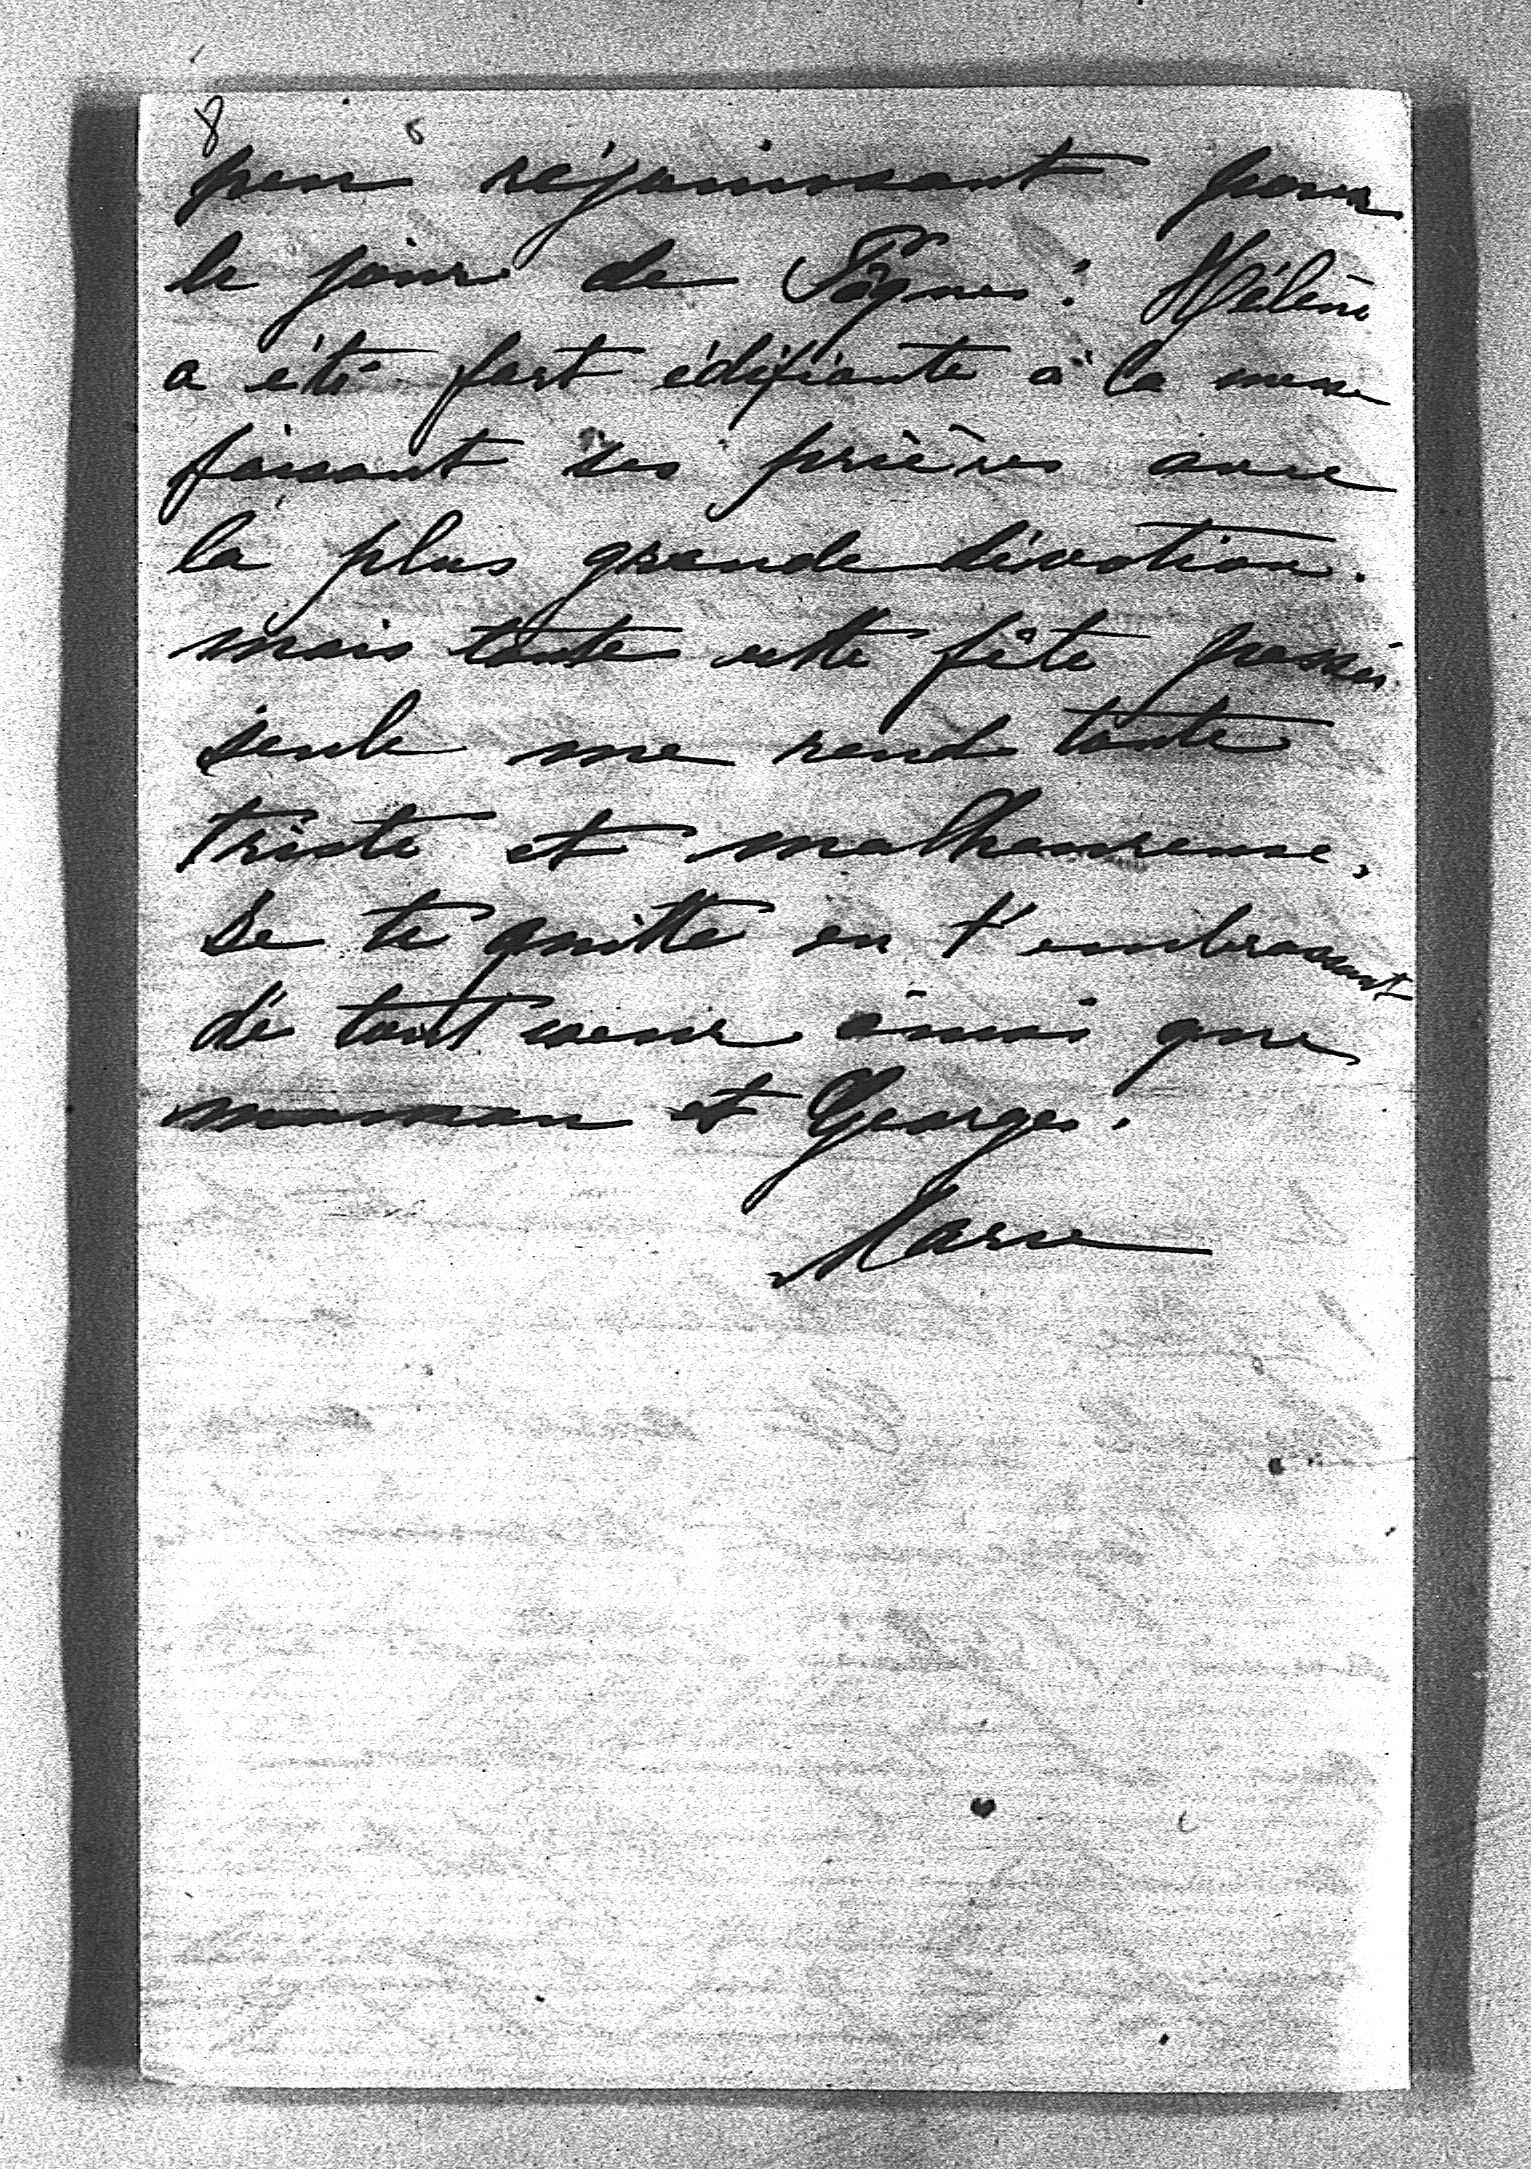 8
peu réjouissant pour
le jour de Pâques. Hélène
a été fort édifiante à la messe
faisant ses prières avec
la plus grande dévotion.
mais toute cette fête passée
seule me rend toute
triste et malheureuse.
Je te quitte en t'embrassant
de tout coeur ainsi que
maman et Georges.
Marie